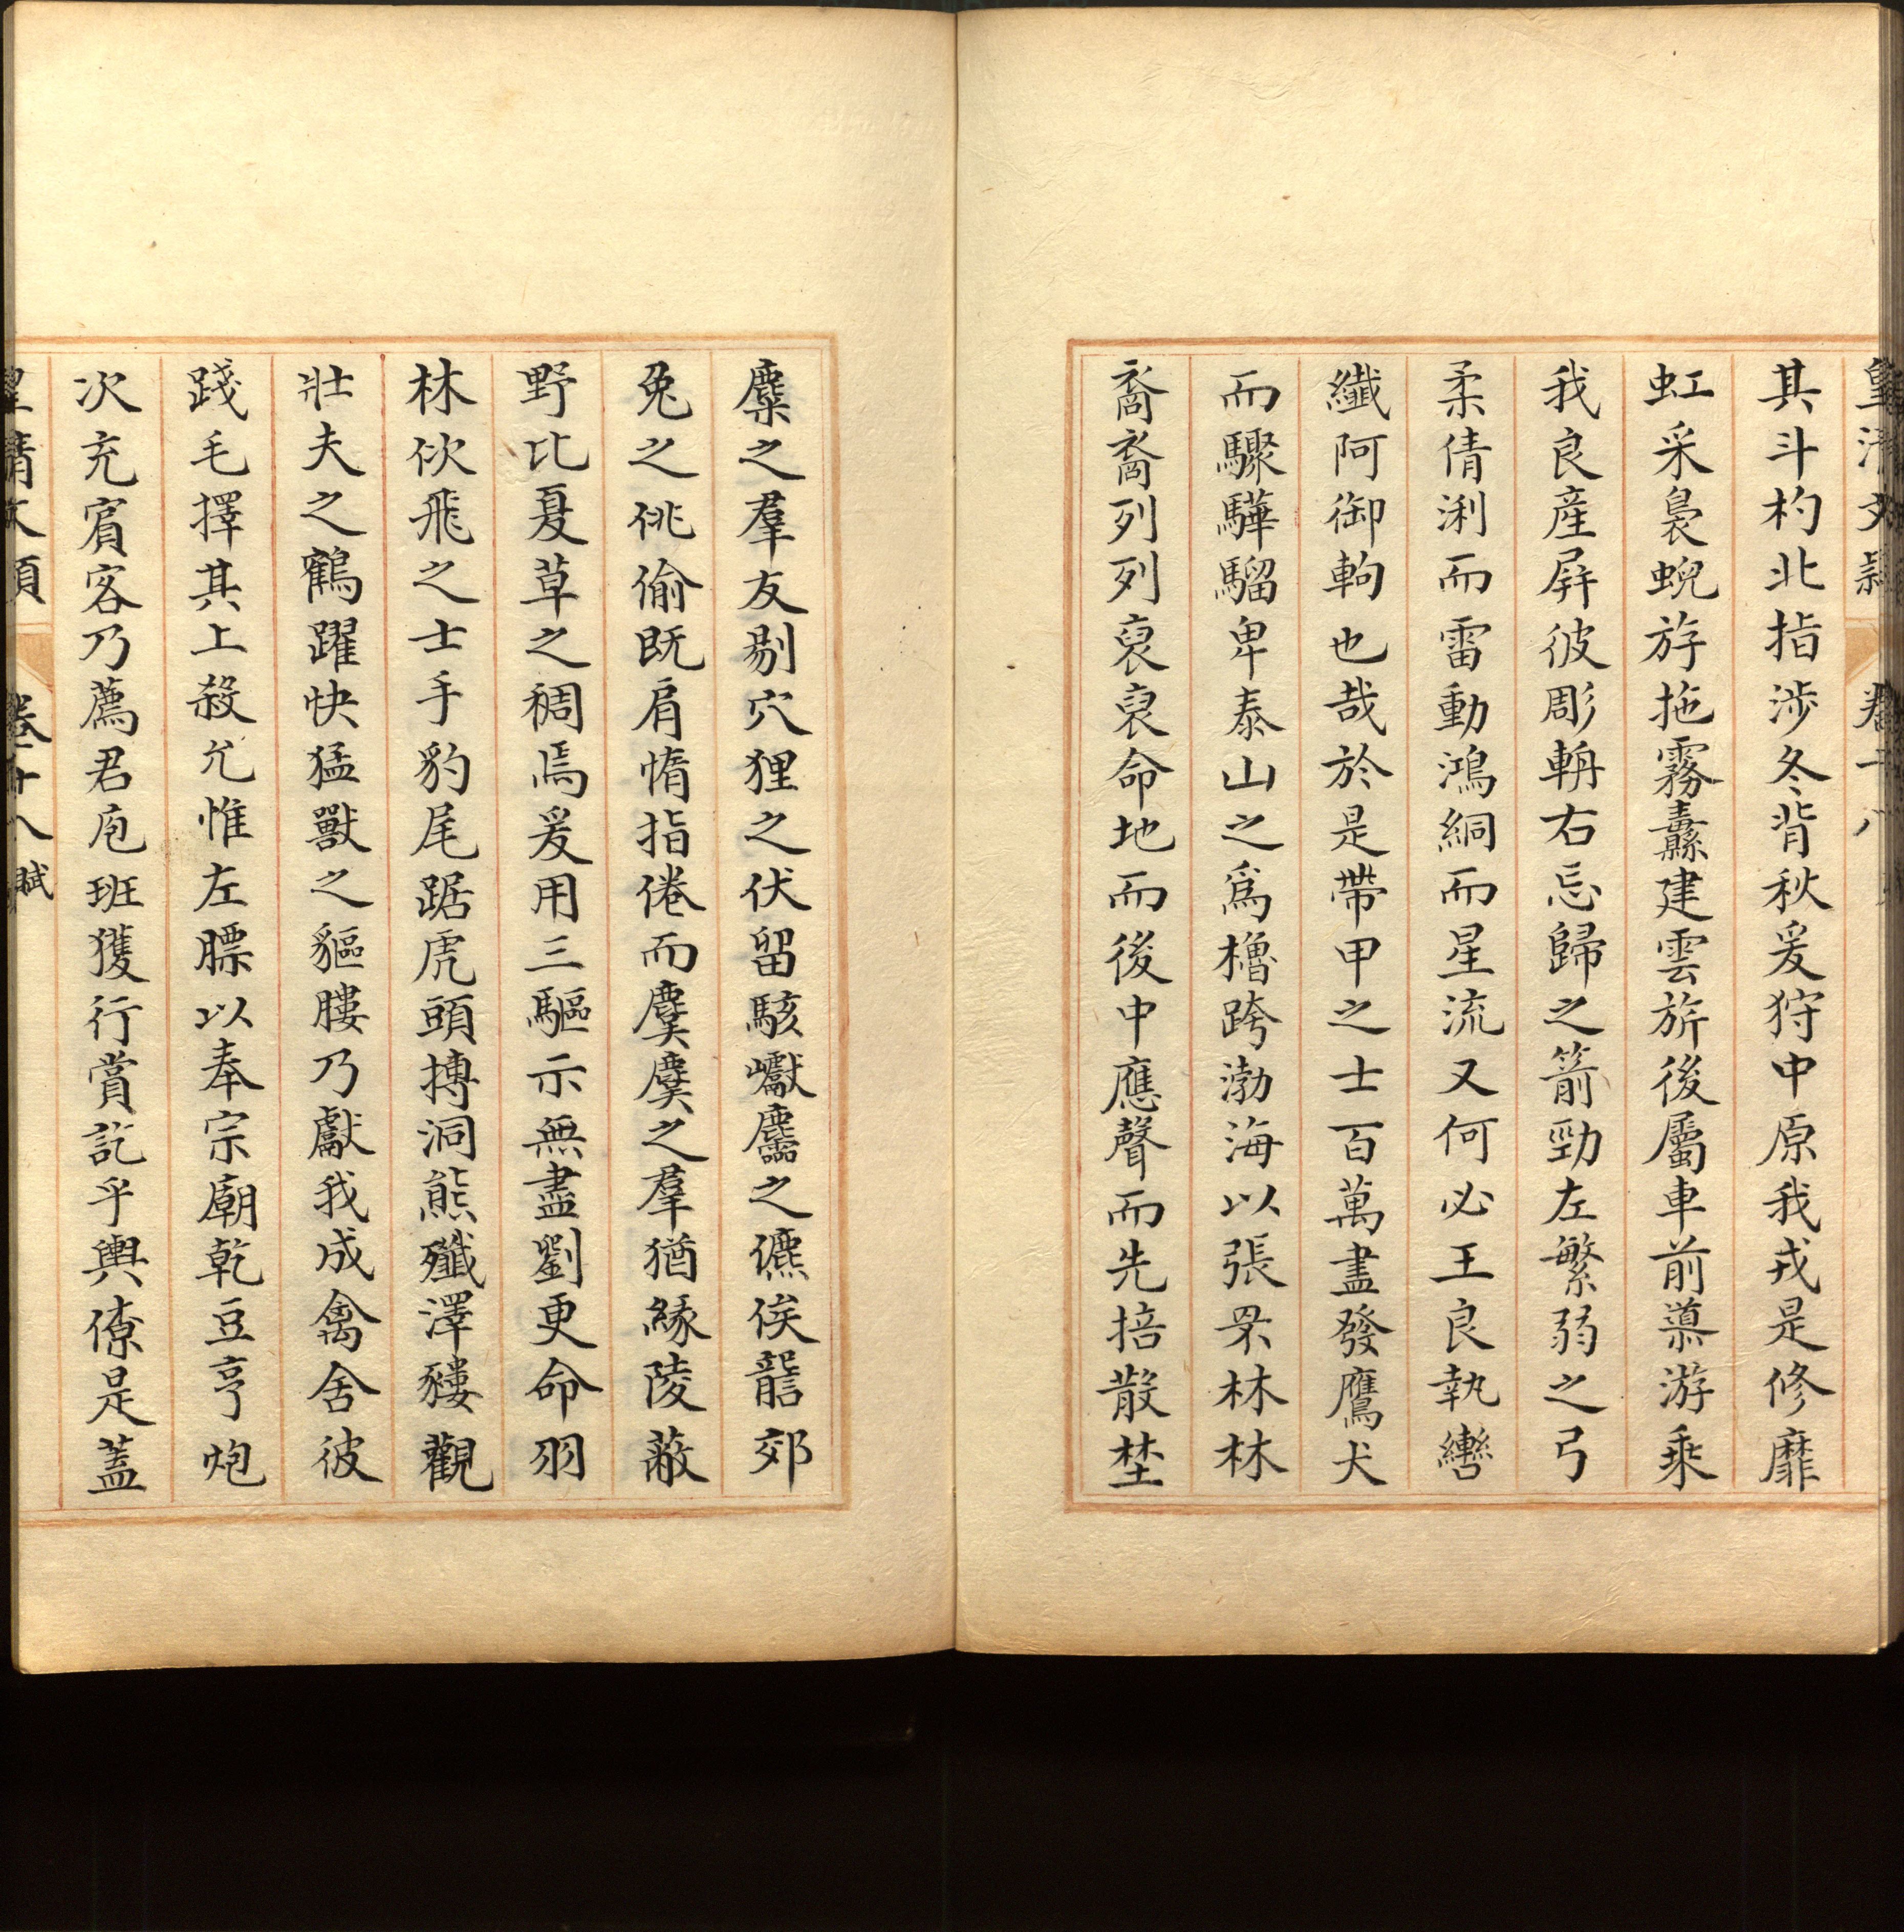 皇清文穎 卷二十八
其斗杓北指涉冬背秋爰狩中原我戎是修靡
虹采裊蜺斿拖霧纛建雲旂後屬車前導游乘
我良産屏彼彫輈右忘歸之箭勁左繁弱之弓
柔倩浰而雷動鴻絧而星流又何必王良執轡
纖阿御軥也哉於是帶甲之士百萬盡發鷹犬
而驟驊騮卑泰山之爲櫓跨渤海以張罘林林
裔裔列列裒裒命地而後中應聲而先掊散埜
麋之羣友剔穴狸之伏留駭巘麢之儦俟讋郊
兔之佻偷既肩惰指倦而麌麌之羣猶緣陵蔽
野比夏草之稠焉爰用三驅示無盡劉更命羽
林佽飛之士手豹尾踞虎頭搏洞熊殲澤貗觀
壯夫之鶴躍快猛獸之貙膢乃獻我成禽舍彼
踐毛擇其上殺允惟左膘以奉宗廟乾豆亨炮
次充賓客乃薦君庖班獲行賞訖乎輿儓是蓋
皇清文穎 卷二十八 賦